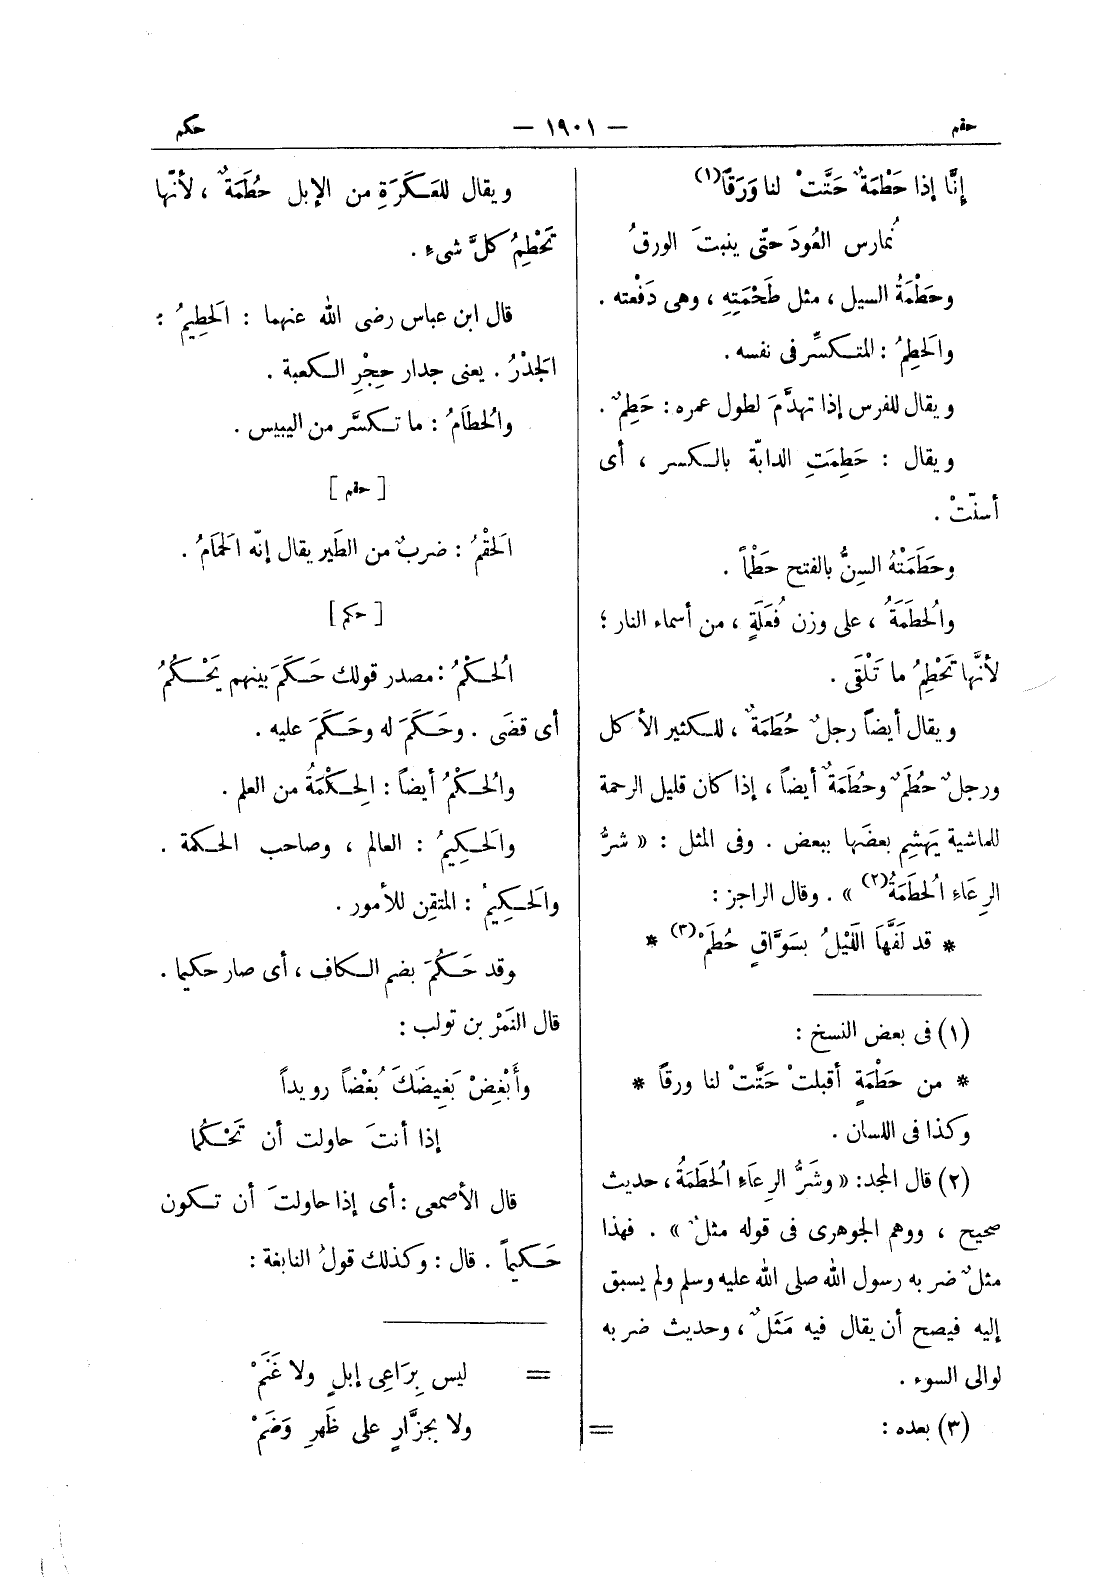 حقم
— ١٩٠١ —
حكم
إِنَّا إذا حَطْمَةٌ حَتَّتْ لنا وَرَقًا(١)
نُمارس العُودَ حتّى ينبتَ الورقُ
وحَطْمَةُ السيل ، مثل طَحْمَتِهِ ، وهى دَفْعته .
والحَطِمُ : المتكسِّر فى نفسه .
ويقال للفرس إذا تهدَّمَ لطول عمره : حَطِمٌ .
ويقال : حَطِمَتِ الدابّة بالكسر ، أى
أسنّتْ .
وحَطَمَتْهُ السِنُّ بالفتح حَطْماً .
والحُطَمَةُ ، على وزن فُعَلَةٍ ، من أسماء النار ؛
لأنَّها تَحْطِمُ ما تَلْقَى .
ويقال أيضاً رجلٌ حُطَمَةٌ ، للكثير الأكل
ورجلٌ حُطَمٌ وحُطَمَةٌ أيضاً ، إذا كان قليل الرحمة
للماشية يَهشِم بعضَها ببعض . وفى المثل : « شرُّ
الرِعَاءِ الحُطَمَةُ(٢) » . وقال الراجز :
* قد لَفَّهَا اللَيْلُ بسَوَّاقٍ حُطَمْ(٣) *
(١) فى بعض النسخ :
* من حَطْمَةٍ أقبلتْ حَتَّتْ لنا ورقاً *
وكذا فى اللسان .
(٢) قال المجد : « وشَرُّ الرِعَاءِ الحُطَمَةُ ، حديث
صحيح ، ووهم الجوهرى فى قوله مثلٌ » . فهذا
مثلٌ ضربه رسول الله صلى الله عليه وسلم ولم يسبق
إليه فيصح أن يقال فيه مَثَلٌ ، وحديث ضربه
لوالى السوء .
(٣) بعده :
=
ويقال للعَكَرَةِ من الإبل حُطَمَةٌ ، لأنّها
تَحْطِمُ كلَّ شىءِ .
قال ابن عباس رضى الله عنهما : الحَطِيمُ :
الجَدْرُ . يعنى جدار حِجْرِ الكعبة .
والحُطَامُ : ما تكسَّر من اليبيس .
[ حقم ]
الحَقْمُ : ضربٌ من الطَير يقال إنّه الحَمَامُ .
[ حكم ]
الحُكْمُ : مصدر قولك حَكَمَ بينهم يَحْكُمُ
أى قضَى . وحَكَمَ له وحَكَمَ عليه .
والحُكْمُ أيضاً : الحِكْمَةُ من العلم .
والحَكِيمُ : العالم ، وصاحب الحكمة .
والحَكِيمُ : المتقِن للأمور .
وقد حَكُمَ بضم الكاف ، أى صار حكيما .
قال النَمْر بن تولب :
وأَبْغِضْ بَغِيضَكَ بُغْضاً رويداً
إذا أنتَ حاولت أن تَحْكُما
قال الأصمعى : أى إذا حاولتَ أن تكون
حَكيماً . قال : وكذلك قولُ النابغة :
=
ليس بِرَاعِى إبلٍ ولا غَنَمْ
ولا بجزَّارٍ على ظَهرِ وَضَمْ